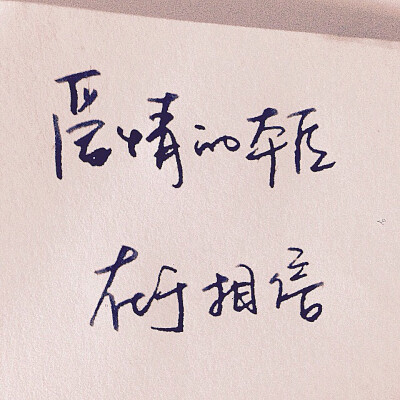 感情的本质
在于相信